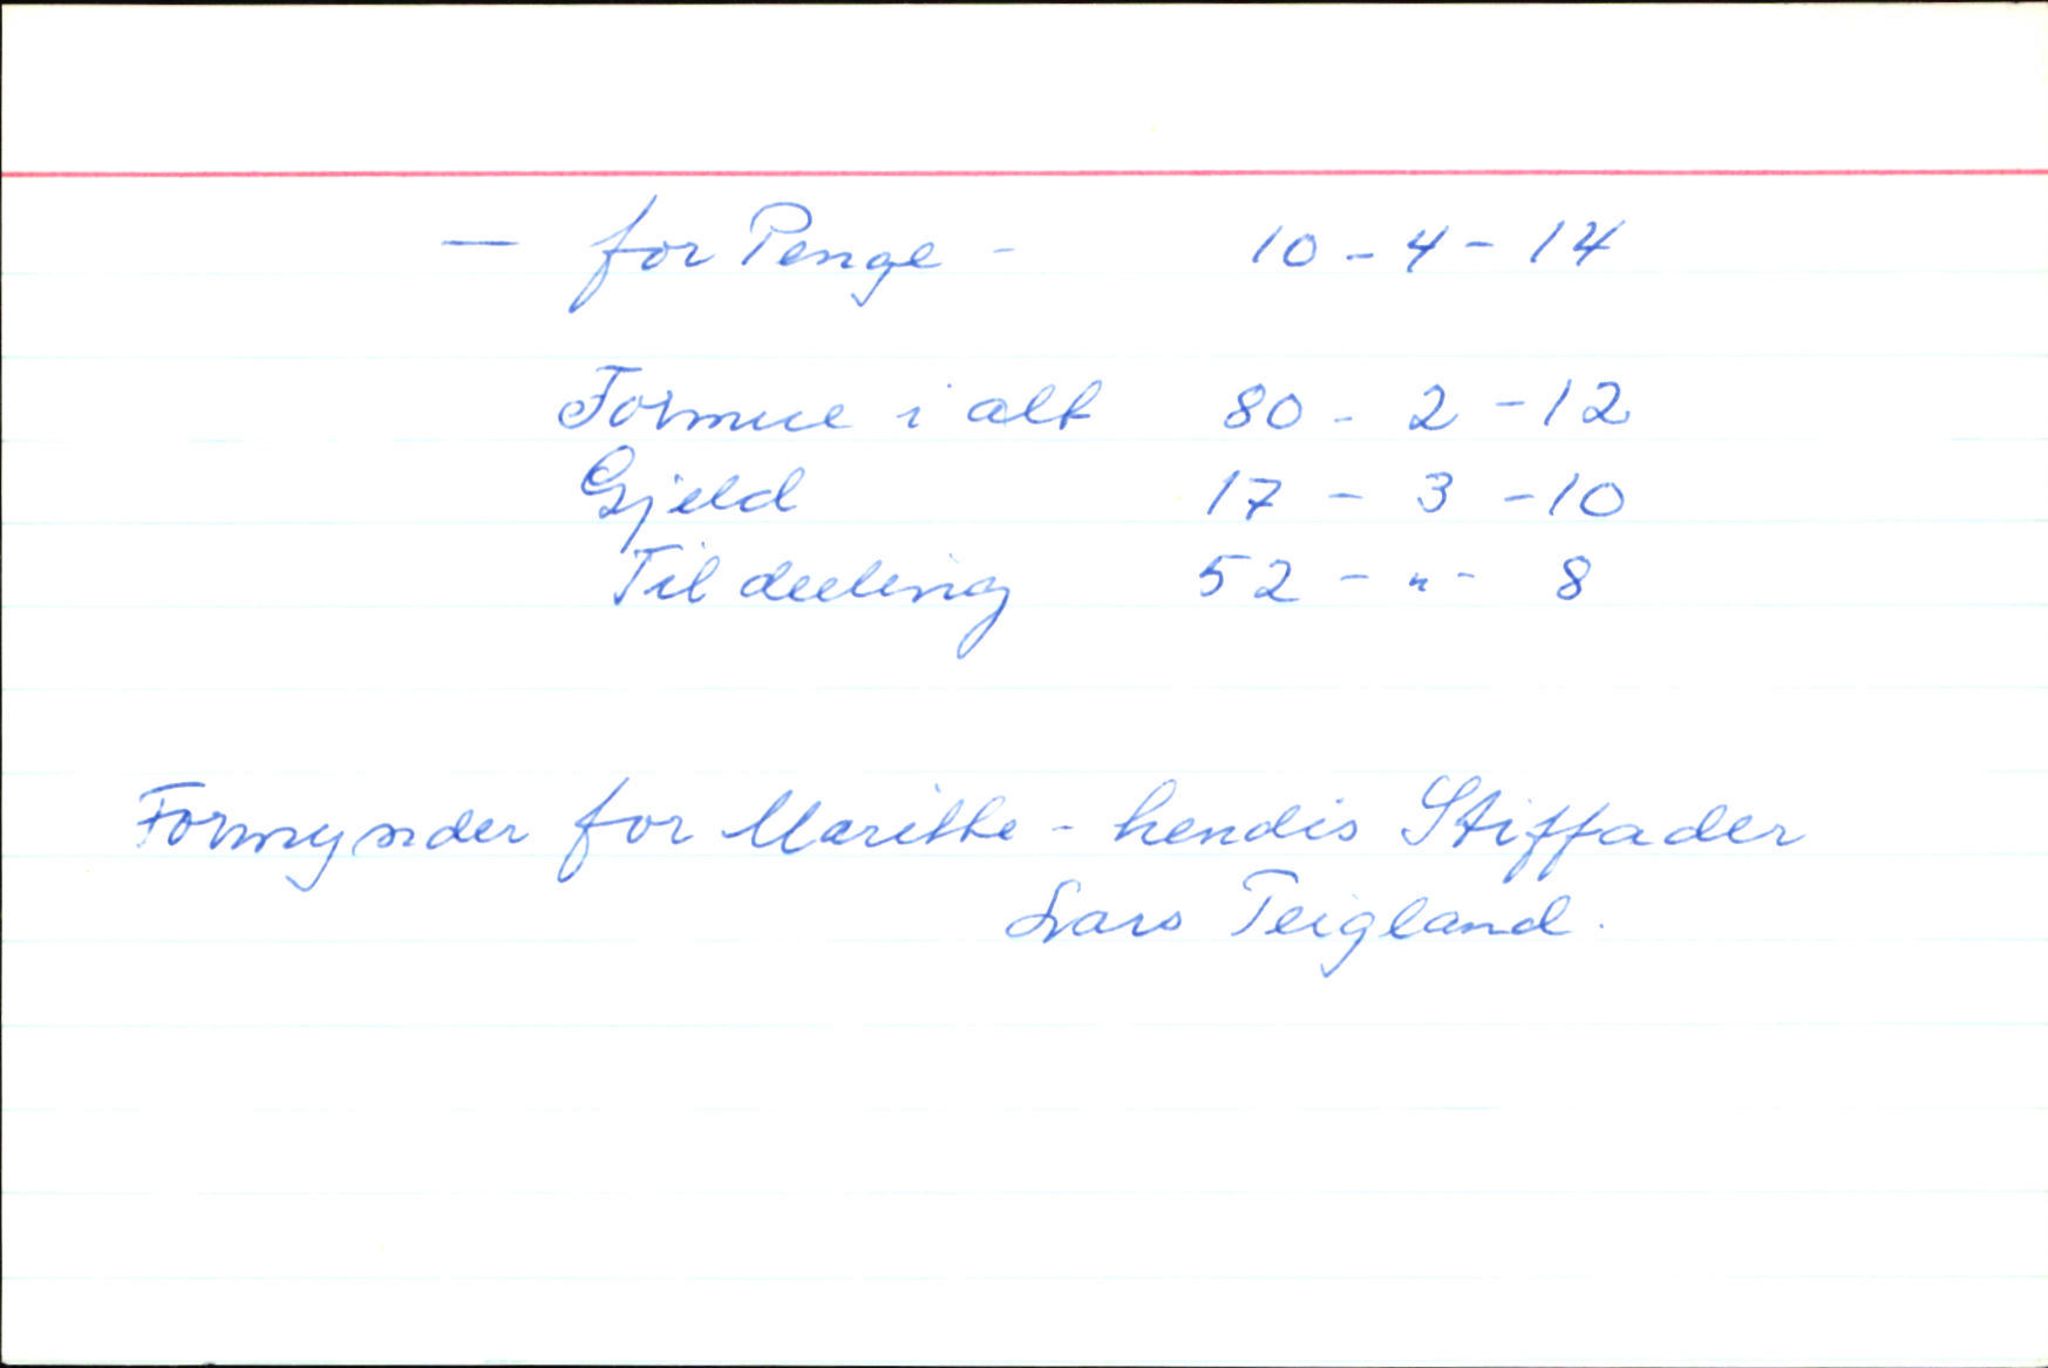 — for Penge - 10 - 4 - 14
Formue i alt 80 - 2 - 12
Gjeld 17 - 3 - 10
Til deeling 52 - " - 8
Formynder for Marithe - hendis Stiffader
Lars Teigland.